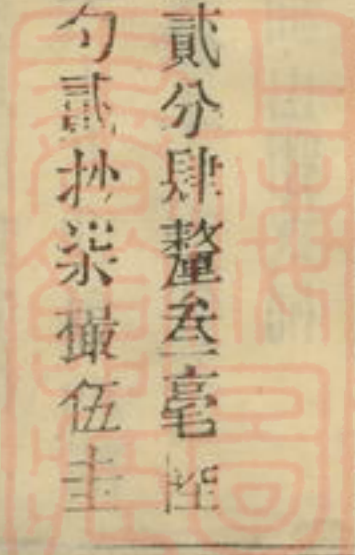 貳分肆釐叁毫陸
勺貳抄柒撮伍圭